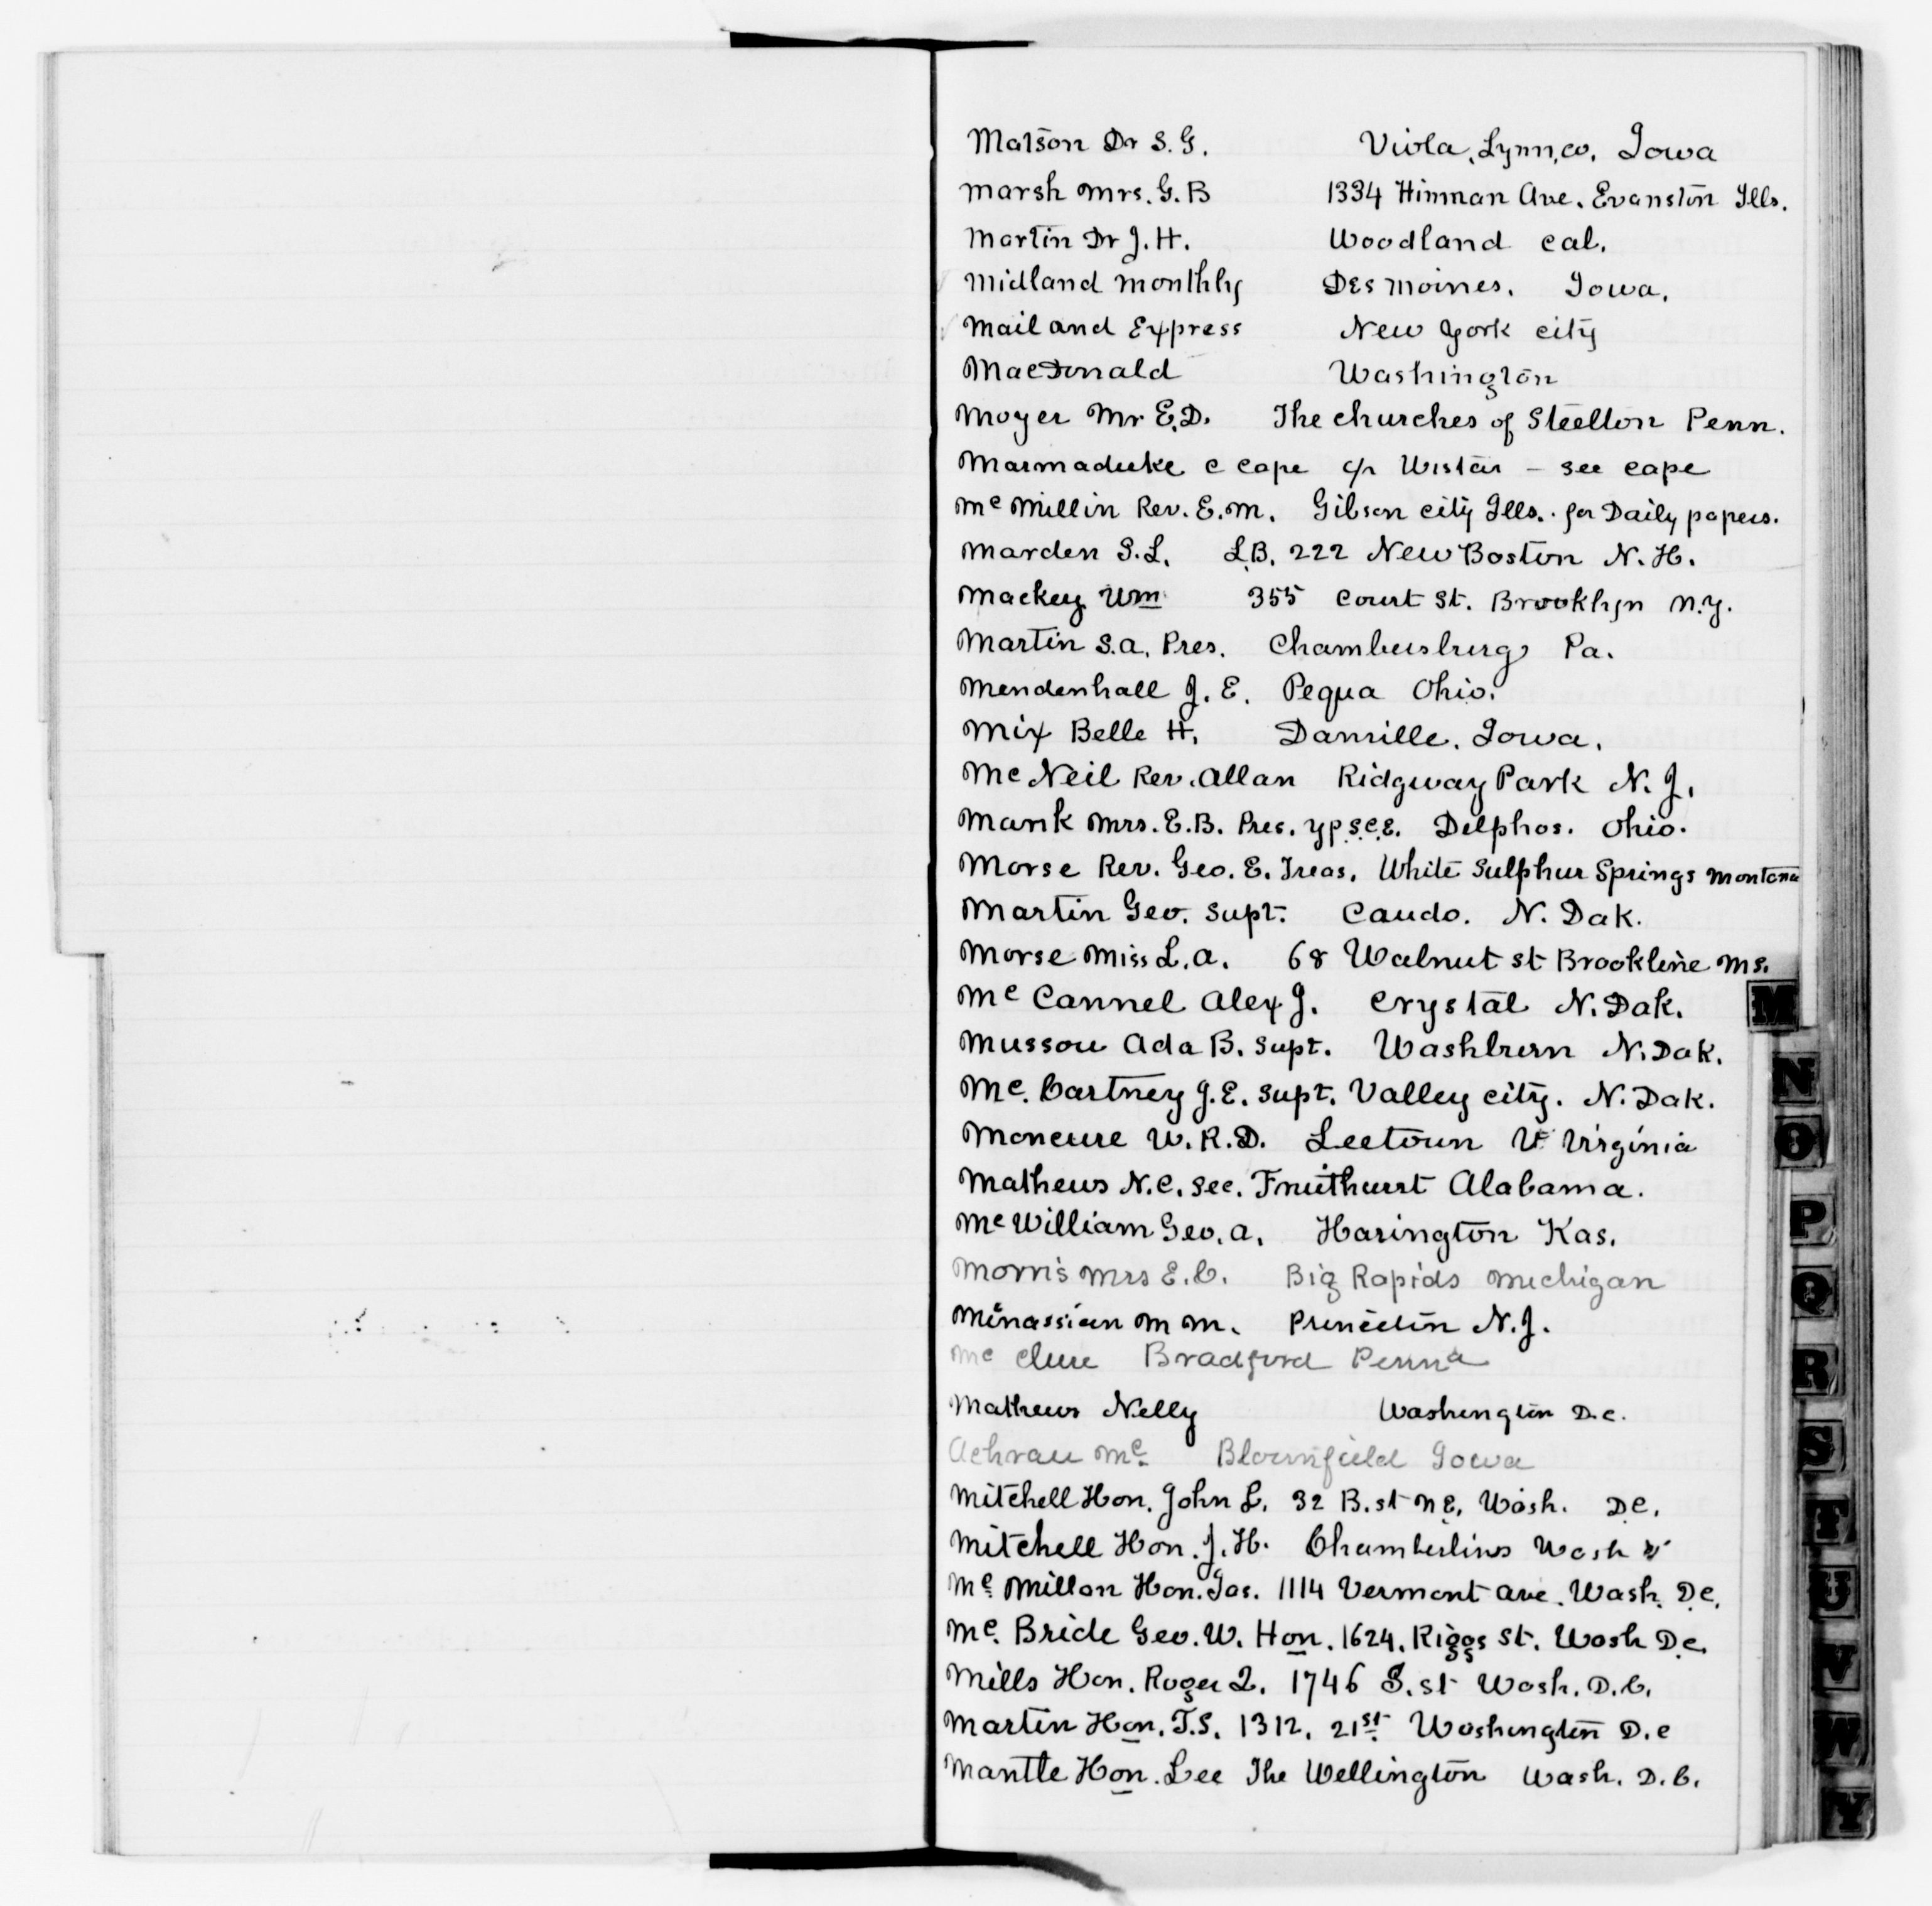 Matson Dr S. G. Viola, Lynn, co. Iowa
Marsh Mrs. G. B 1334 Hinman Ave. Evanston Ills.
Martin Dr J. H. Woodland Cal.
Midland Monthly Des Moines. Iowa.
Mail and Express New York city
MacDonald Washington
Moyer Mr E. D. The churches of Steelton Penn.
Marmaduke C Cape c/o Wistar – see Cape
McMillin Rev. E. M. Gibson city Ills. for Daily papers.
Marden S. L. L.B. 222 New Boston N. H.
Mackey Wm 355 Court St. Brooklyn N. Y.
Martin S. A. Pres. Chambersburg Pa.
Mendenhall J. E. Pequa Ohio.
Mix Belle H. Danville. Iowa.
McNeil Rev. Allan Ridgway Park N. J.
Mark Mrs. E. B. Pres. Y P S. C. E. Delphos. Ohio.
Morse Rev. Geo. E. Treas. White Sulphur Springs Montana
Martin Geo. Supt. Cando. N. Dak.
Morse Miss L. A. 68 Walnut st Brookline Ms.
Mc Cannel Alex J. Crystal N. Dak.
Musson Ada B. Supt. Washburn N. Dak.
Mc. Cartney J. E. Supt. Valley city. N. Dak.
Moncure W. R. D. Leetown W Virginia
Mathews N. C. Sec. Fruithurst Alabama.
McWilliam Geo. A. Harington Kas.
Morris Mrs E. C. Big Rapids Michigan
Minassian M M. Princeton N. J.
Mc Clure Bradford Penna
Mathews Nelly Washington D. C.
Achran Mc. Bloomfield Iowa
Mitchell Hon. John L. 32 B. st N E. Wash. D C.
Mitchell Hon. J. H. Chamberlins Wash "
Mc Millan Hon. Jas. 1114 Vermont Ave. Wash. D C.
Mc. Bride Geo. W. Hon. 1624. Riggs St. Wash D. C.
Mills Hon. Roger Q. 1746 S. st Wash. D. C.
Martin Hon. T. S. 1312. 21st Washington D. C
Mantle Hon. Lee The Wellington Wash. D. C.
M
N
O
P
Q
R
S
T
U
V
W
Y